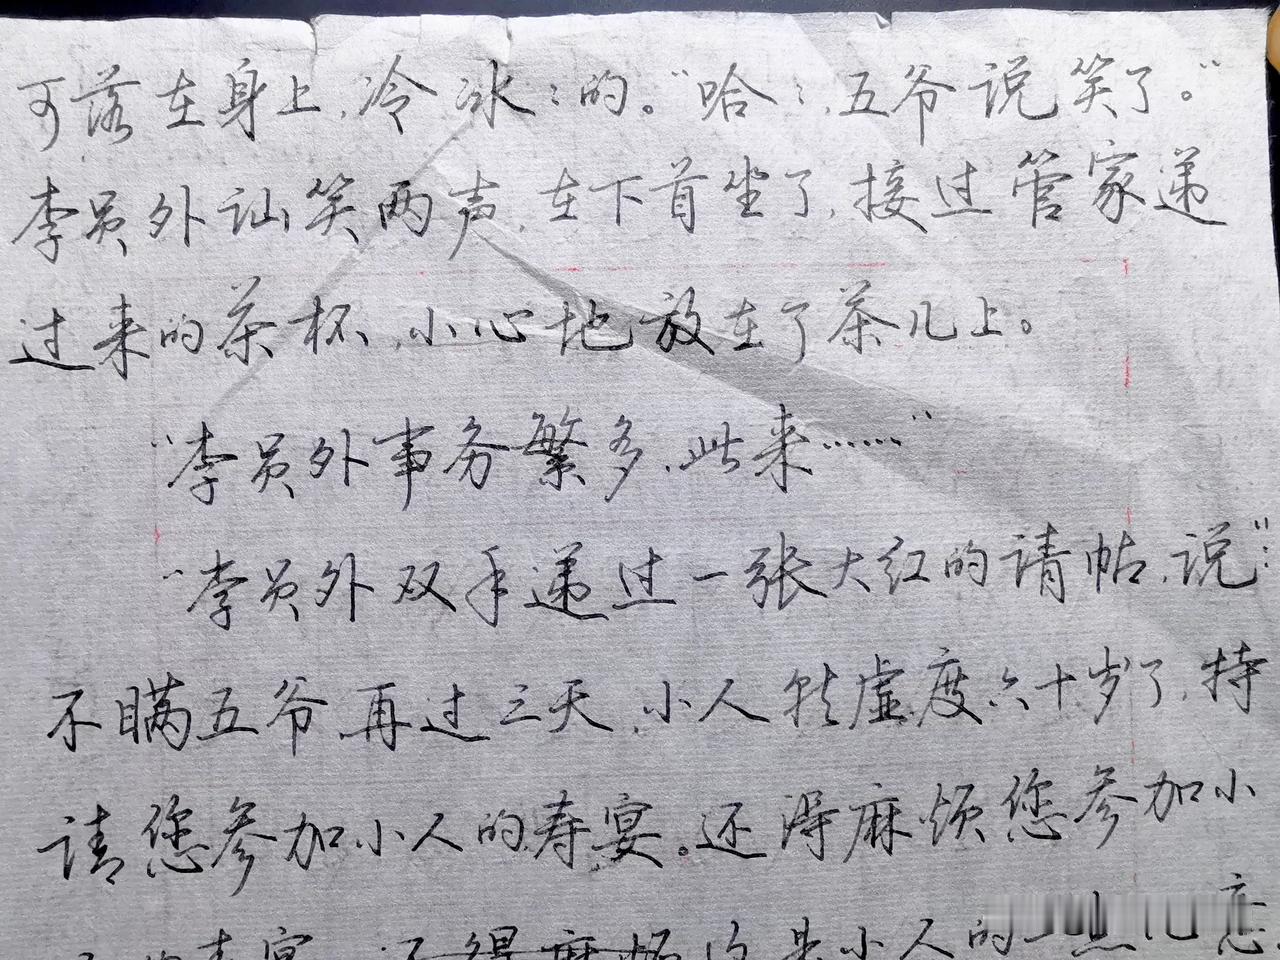 可落在身上,冷冰:的。“哈:,五爷说笑了。”
李员外讪笑两声,在下首坐了,接过管家递
过来的茶杯,小心地放在了茶几上。
“李员外事务繁多,此来……”
“李员外双手递过一张大红的请帖,说”:
不瞒五爷,再过三天,小人就虚度六十岁了,特
请您参加小人的寿宴。还得麻烦您参加小
小人的一点